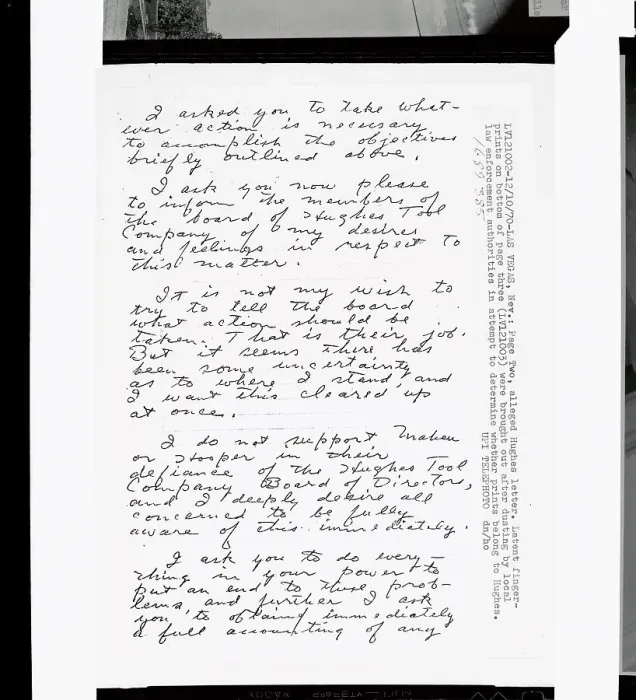 I asked you to take what-
ever action is necessary
to accomplish the objectives
briefly outlined above.
I ask you now please
to inform the members of
the board of Hughes Tool
Company of my desires
and feelings in respect to
this matter.
It is not my wish to
try to tell the board
what action should be
taken. That is their job.
But it seems there has
been some uncertainty
as to where I stand, and
I want this cleared up
at once.
I do not support Maheu
or Hooper in their
defiance of the Hughes Tool
Company Board of Directors,
and I deeply desire all
concerned to be fully
aware of this immediately.
I ask you to do every-
thing in your power to
put an end to these prob-
lems, and further I ask
you to obtain immediately
a full accounting of any
LV121002-12/10/70-LAS VEGAS, Nev.: Page Two, alleged Hughes letter. Latent finger-
prints on bottom of page three (LV121003) were brought out after dusting by local
law enforcement authorities in attempt to determine whether prints belong to Hughes.
UPI TELEPHOTO dn/ho
KODAK SAFETY FILM